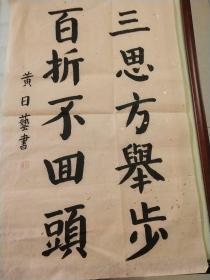 三思方舉步
百折不回頭
黄日藝書